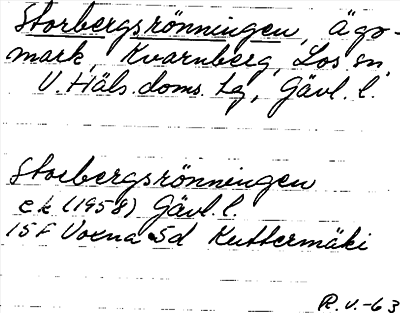 Storbergsrönningen, Ägo-
mark, Kvarnberg, Los sn
V. Häls. doms. tg, Gävl. l.
Storbergsrönningen
ek (1958) Gävl. l.
15F Voxna Sd Kuttermäki
R.V.-63